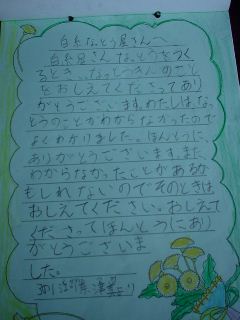 白糸なっとう屋さんへ
白糸屋さん、なっとうをつく
るとき、なっとうきんのこと
をおしえてくださってあり
がとうございます。わたしは、なっ
とうのことがわからなかったので
よくわかりました。ほんとうに、
ありがとうございます。また、
わからなかったことがあるか
もしれないのでそのときは
おしえてください。おしえて
くださってほんとうにあり
がとうございま
した。
より